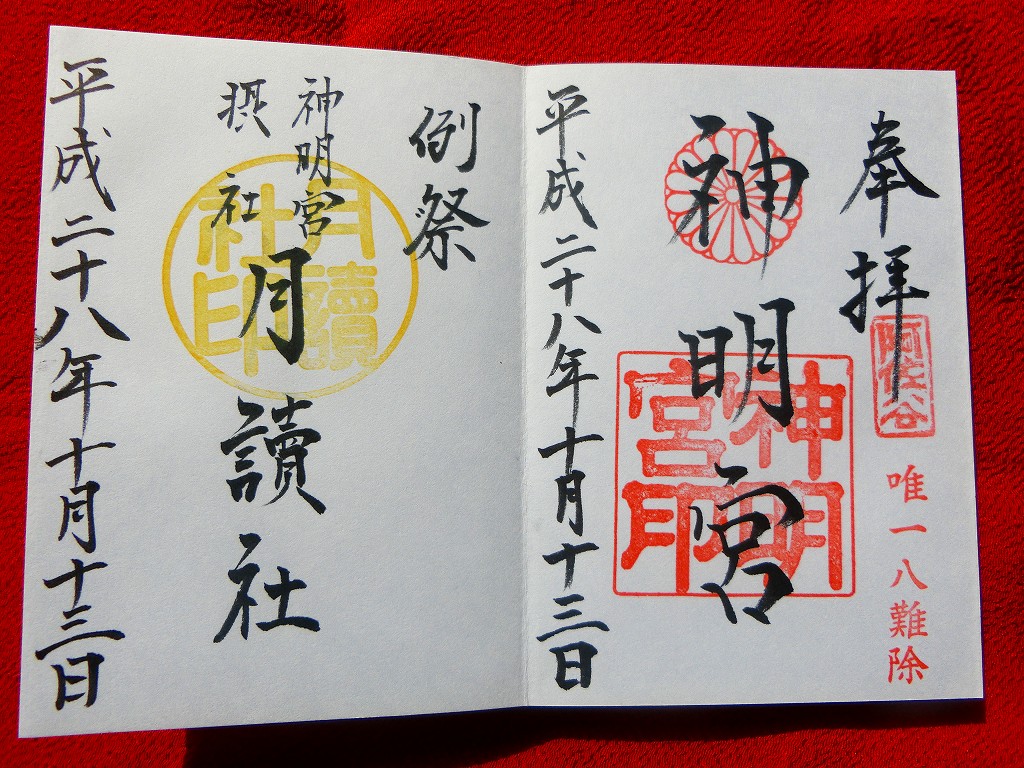 奉拝
阿佐谷
唯一八難除
神明宮
神明宮印
平成二十八年十月十三日
例祭
神明宮
摂社
月讀社
月讀社印
平成二十八年十月十三日